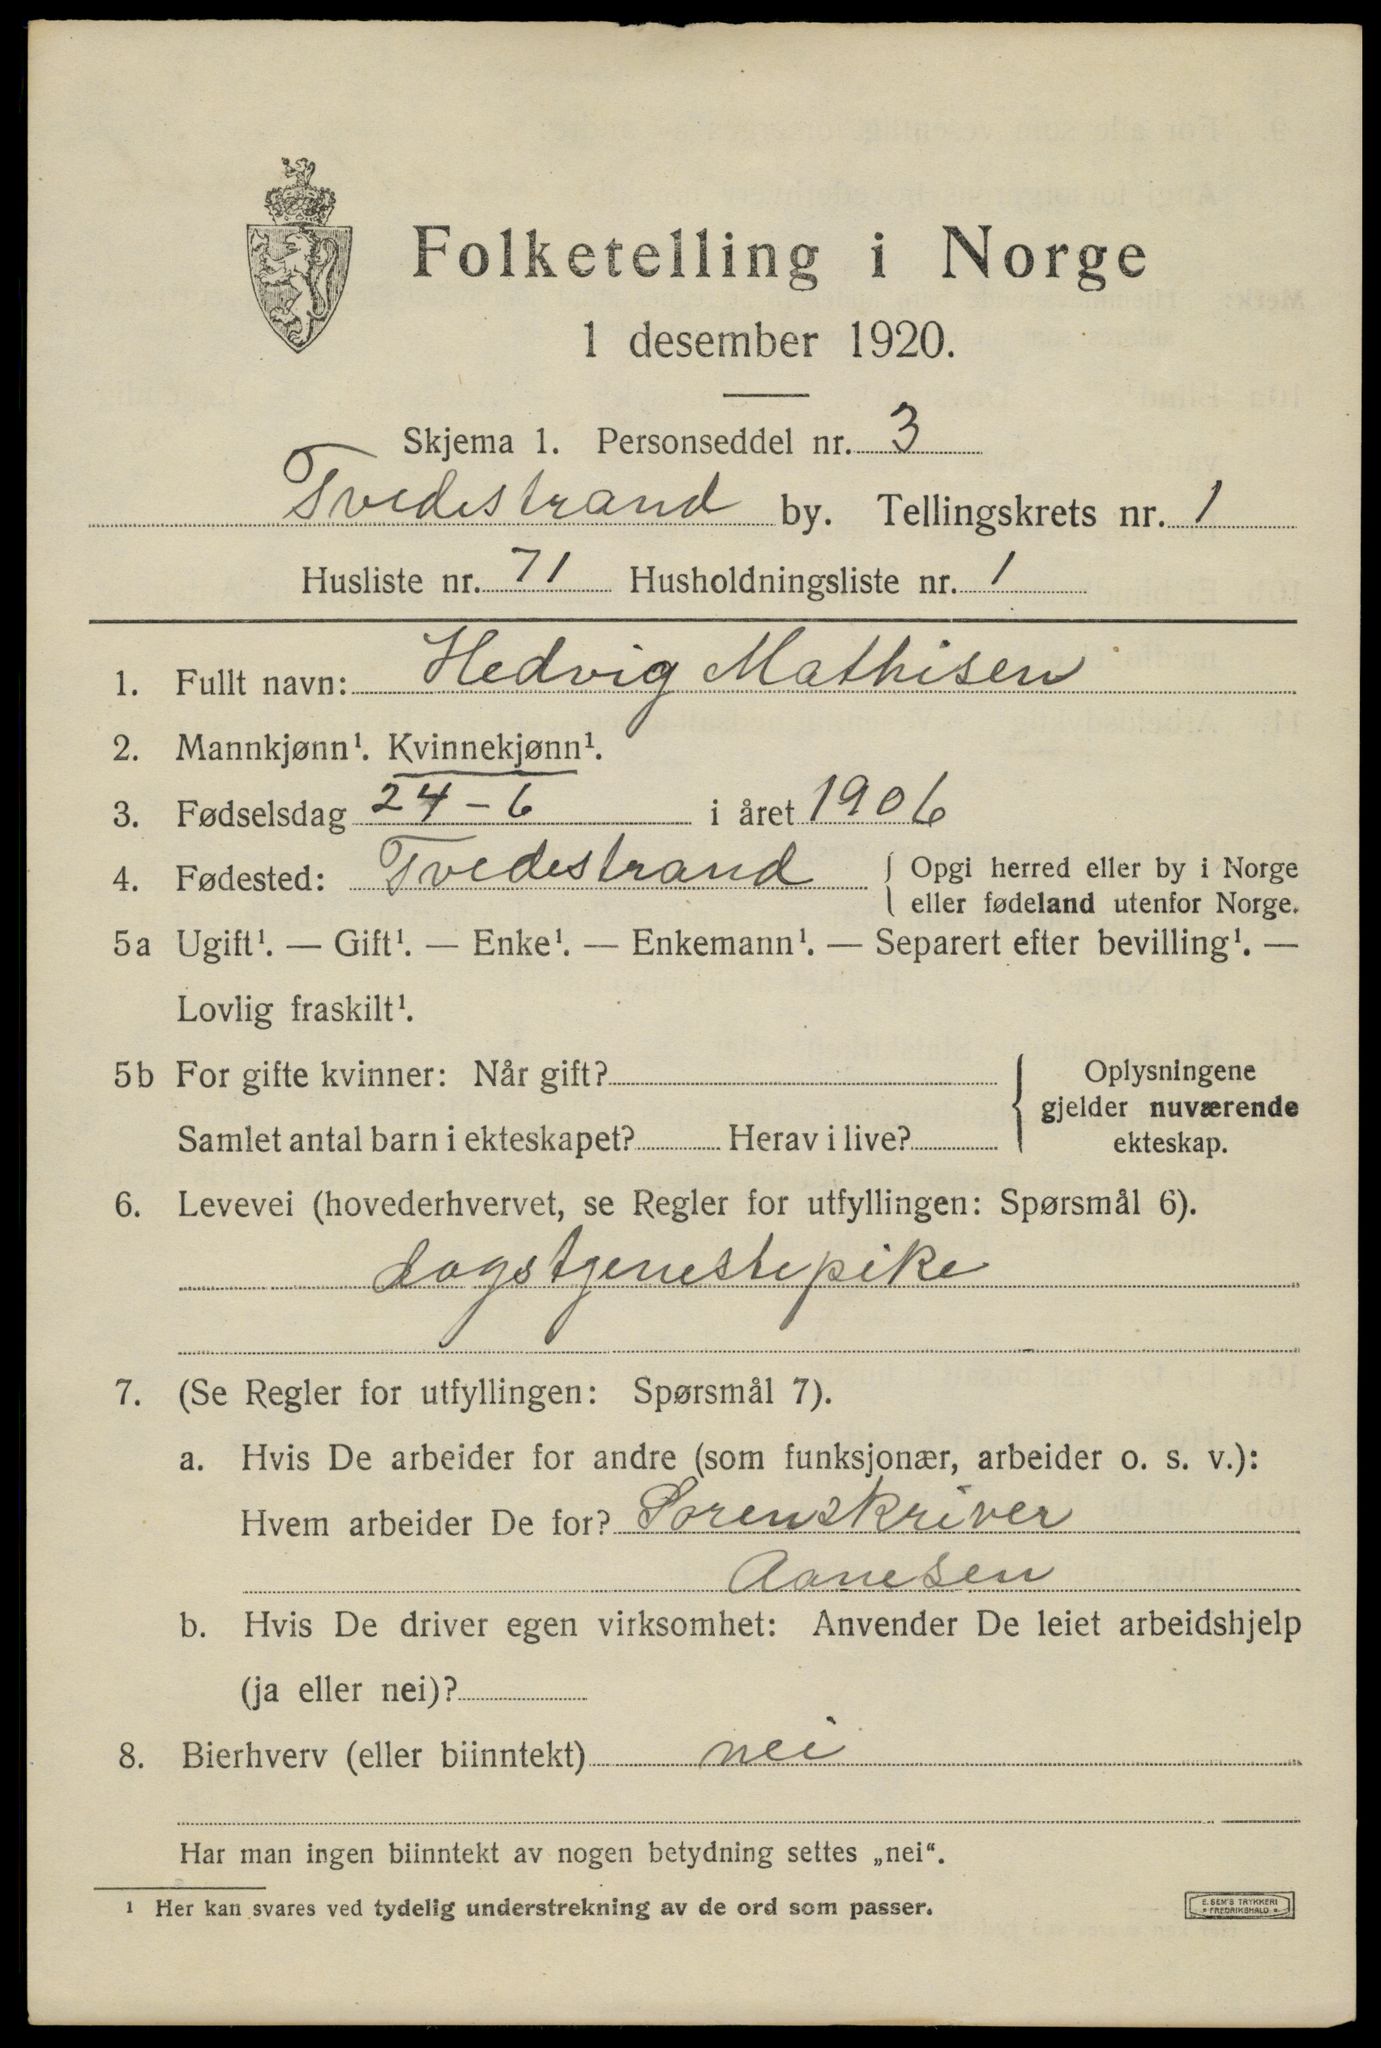 Folketelling i Norge
1 desember 1920.
Skjema 1. Personseddel nr. 3
Tvedestrand by. Tellingskrets nr. 1
Husliste nr. 71 Husholdningsliste nr. 1
1. Fullt navn: Hedvig Mathisen
2. Mannkjønn¹. Kvinnekjønn¹.
3. Fødselsdag 24-6 i året 1906
4. Fødested: Tvedestrand { Opgi herred eller by i Norge
eller fødeland utenfor Norge.
5a Ugift¹. — Gift¹. — Enke¹. — Enkemann¹. — Separert efter bevilling¹. —
Lovlig fraskilt¹.
5b For gifte kvinner: Når gift?
Samlet antal barn i ekteskapet? Herav i live?
{ Oplysningene
gjelder nuværende
ekteskap.
6. Levevei (hovederhvervet, se Regler for utfyllingen: Spørsmål 6).
dagstjenestepike
7. (Se Regler for utfyllingen: Spørsmål 7).
a. Hvis De arbeider for andre (som funksjonær, arbeider o. s. v.):
Hvem arbeider De for? Sorenskriver
Aanesen
b. Hvis De driver egen virksomhet: Anvender De leiet arbeidshjelp
(ja eller nei)?
8. Bierhverv (eller biinntekt) nei
Har man ingen biinntekt av nogen betydning settes „nei“.
¹ Her kan svares ved tydelig understrekning av de ord som passer.
E. SEM'S TRYKKERI
FREDRIKSHALD